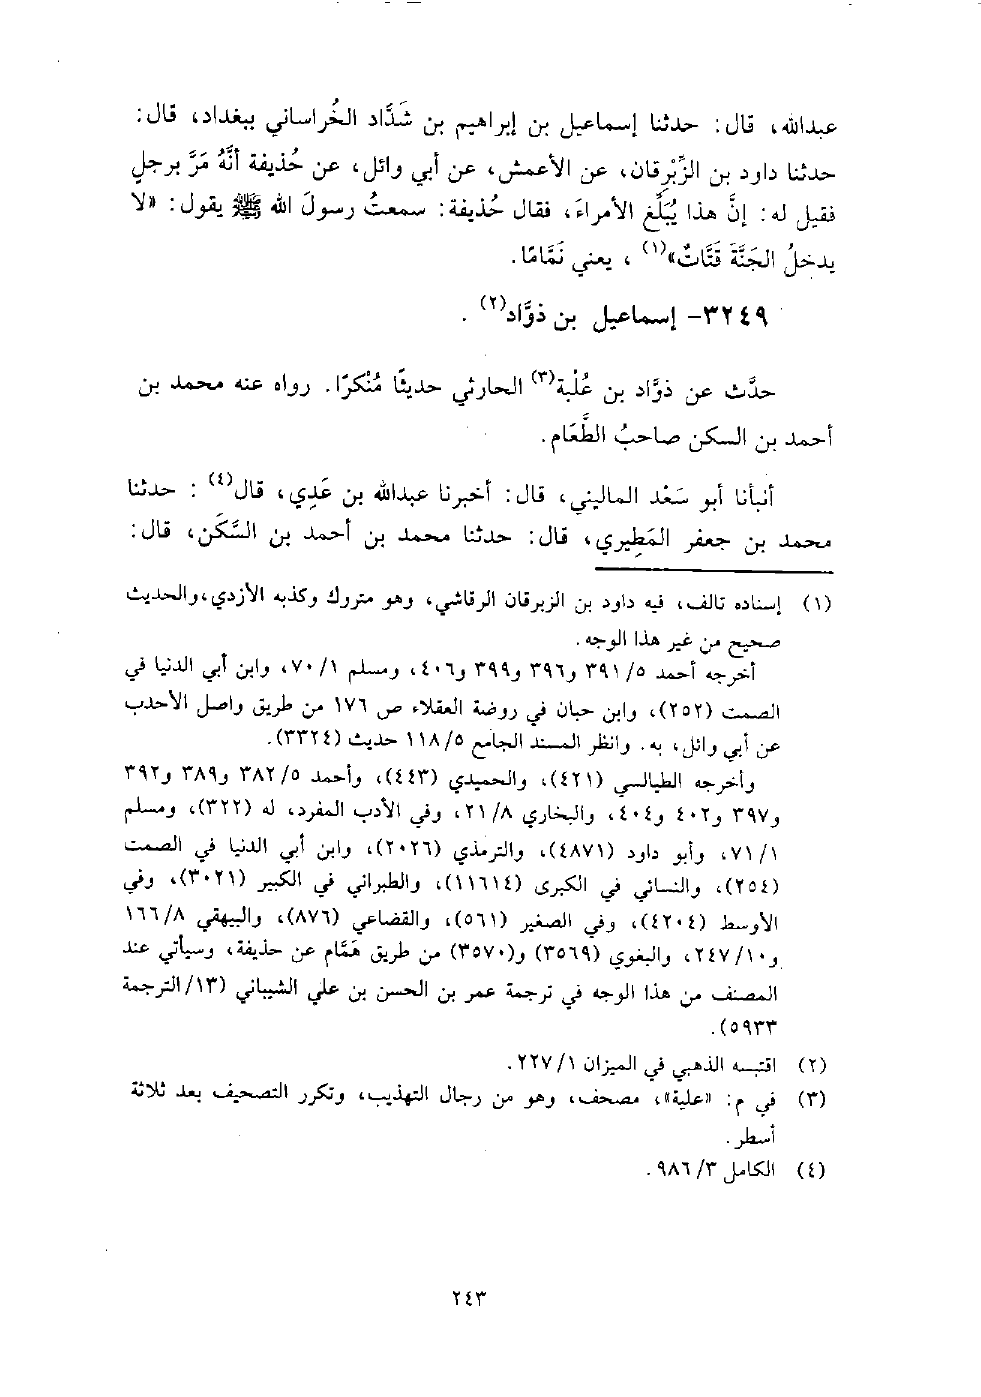 عبدالله، قال: حدثنا إسماعيل بن إبراهيم بن شَدَّاد الخُراساني ببغداد، قال:
حدثنا داود بن الزِّبْرقان، عن الأعمش، عن أبي وائل، عن حُذيفة أنَّهُ مَرَّ برجلٍ
فقيل له: إنَّ هذا يُبَلِّغ الأمراءَ، فقال حُذيفة: سمعتُ رسولَ الله ﷺ يقول: «لا
يدخلُ الجَنَّةَ قَتَّاتٌ»(١) ، يعني نَمَّامًا.
٣٢٤٩- إسماعيل بن ذوَّاد(٢) .
حدَّث عن ذوَّاد بن عُلْبة(٣) الحارثي حديثًا مُنْكرًا. رواه عنه محمد بن
أحمد بن السكن صاحبُ الطَّعَام.
أنبأنا أبو سَعْد الماليني، قال: أخبرنا عبدالله بن عَدِي، قال(٤) : حدثنا
محمد بن جعفر المَطِيري، قال: حدثنا محمد بن أحمد بن السَّكَن، قال:
(١) إسناده تالف، فيه داود بن الزبرقان الرقاشي، وهو متروك وكذبه الأزدي، والحديث
صحيح من غير هذا الوجه.
أخرجه أحمد ٥/ ٣٩١ و٣٩٦ و٣٩٩ و٤٠٦، ومسلم ١/ ٧٠، وابن أبي الدنيا في
الصمت (٢٥٢)، وابن حبان في روضة العقلاء ص ١٧٦ من طريق واصل الأحدب
عن أبي وائل، به. وانظر المسند الجامع ٥/ ١١٨ حديث (٣٣٢٤).
وأخرجه الطيالسي (٤٢١)، والحميدي (٤٤٣)، وأحمد ٥/ ٣٨٢ و٣٨٩ و٣٩٢
و٣٩٧ و٤٠٢ و٤٠٤، والبخاري ٨/ ٢١، وفي الأدب المفرد، له (٣٢٢)، ومسلم
١/ ٧١، وأبو داود (٤٨٧١)، والترمذي (٢٠٢٦)، وابن أبي الدنيا في الصمت
(٢٥٤)، والنسائي في الكبرى (١١٦١٤)، والطبراني في الكبير (٣٠٢١)، وفي
الأوسط (٤٢٠٤)، وفي الصغير (٥٦١)، والقضاعي (٨٧٦)، والبيهقي ٨/ ١٦٦
و١٠/ ٢٤٧، والبغوي (٣٥٦٩) و(٣٥٧٠) من طريق هَمَّام عن حذيفة، وسيأتي عند
المصنف من هذا الوجه في ترجمة عمر بن الحسن بن علي الشيباني (١٣/ الترجمة
٥٩٣٣).
(٢) اقتبسه الذهبي في الميزان ١/ ٢٢٧.
(٣) في م: «علية»، مصحف، وهو من رجال التهذيب، وتكرر التصحيف بعد ثلاثة
أسطر.
(٤) الكامل ٣/ ٩٨٦.
٢٤٣